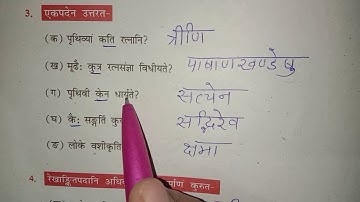 3. एकपदेन उत्तरत-
(क) पृथिव्यां कति रत्नानि? त्रीणि
(ख) मूढैः कुत्र रत्नसंज्ञा विधीयते? पाषाणखण्डेषु
(ग) पृथिवी केन धार्यते? सत्येन
(घ) कैः सङ्गतिं सद्भिरेव
(ङ) लोके वशीकृति क्षमा
4. रेखाङ्कितपदानि कुरुत-